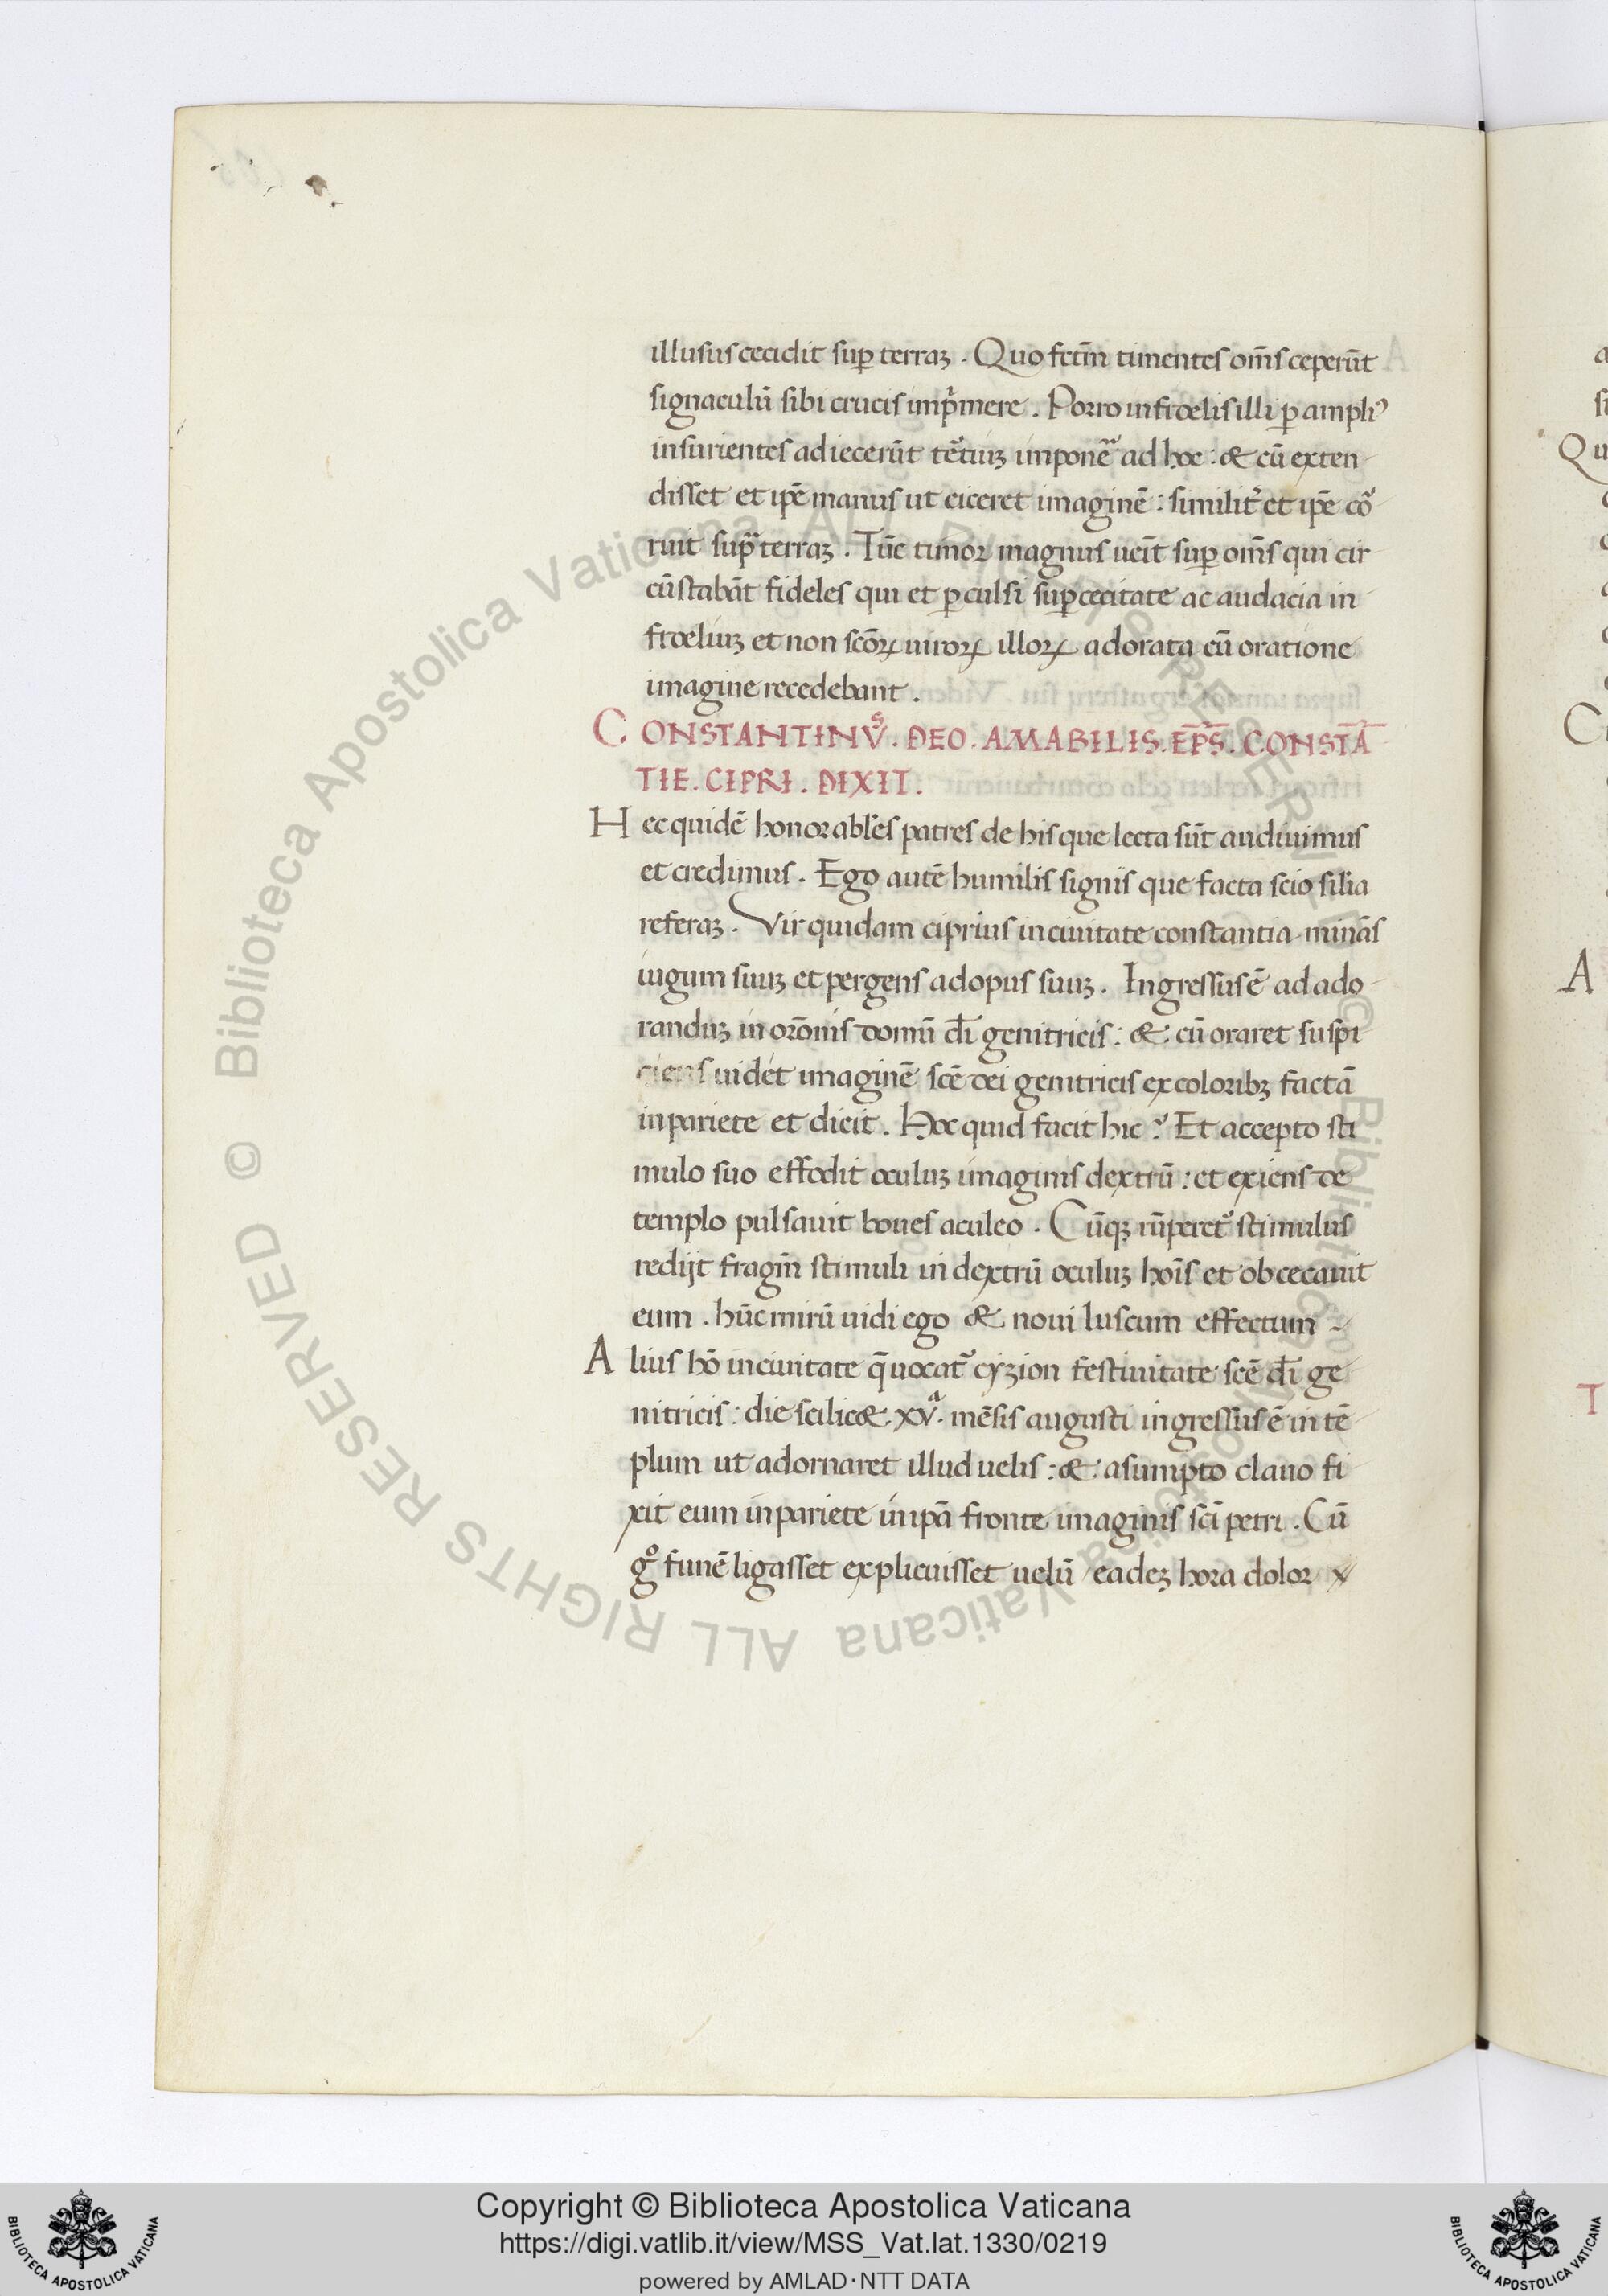 illusus cecidit suꝑ terraꝫ . Quo fctm̄ timentes om̄s ceperūt
signaculū sibi crucis imp̓mere . Porro infidelis illi ꝑ ampliꝰ
insurientes adiecerūt tētiuꝫ imponē ad hoc : & cū exten
disset et ip̄e manus ut eiceret imaginē : similit̓ et ip̄e cō
ruit sup̄ terraꝫ . Tūc timor magnus ueīt suꝑ om̄s qui cir
cūstabāt fideles qui et ꝑculsi suꝑ cecitate ac audacia in
fideliuꝫ et non scōꝝ uiroꝝ illoꝝ adorata cū oratione
imagine recedebant .
CONSTANTINVˢ . DEO . AMABILIS . EP̄S . CONSTĀ
TIE . CIPRI . DIXIT .
Hec quidē honorabl̓es patres de his que lecta sūt audiuimus
et credimus . Ego autē humilis signis que facta scio silia
referaꝫ . Vir quidam ciprius in ciuitate constantia minās
iugum suuꝫ et pergens ad opus suuꝫ . Ingressus ē ad ado
randuꝫ in orōnis domū dī genitricis : & cū oraret suspi
ciens uidet imaginē scē dei genitricis ex coloribꝫ factā
in pariete et dicit . Hoc quid facit hic ? Et accepto sti
mulo suo effodit oculuꝫ imaginis dextrū : et exiens de
templo pulsauit boues aculeo . Cūqꝫ rūperet̓ stimulus
redijt fragm̄ stimuli in dextrū oculuꝫ hoīs et obcecauit
eum . hūc mirū uidi ego & noui luscum effectum
Alius hō in ciuitate q̄ uocat̓ cyzion festiuitate scē dī ge
nitricis : die scilic& . xvᵃ . mēsis augusti ingressus ē in tē
plum ut adornaret illud uelis : & asumpto clauo fi
xit eum in pariete in ipā fronte imaginis scī petri . Cū
gᵒ funē ligasset explicuisset uelū eadeꝫ hora dolor
Copyright © Biblioteca Apostolica Vaticana
https://digi.vatlib.it/view/MSS_Vat.lat.1330/0219
powered by AMLAD·NTT DATA
BIBLIOTECA APOSTOLICA VATICANA
BIBLIOTECA APOSTOLICA VATICANA
© Biblioteca Apostolica Vaticana ALL RIGHTS RESERVED © Biblioteca Apostolica Vaticana ALL RIGHTS RESERVED